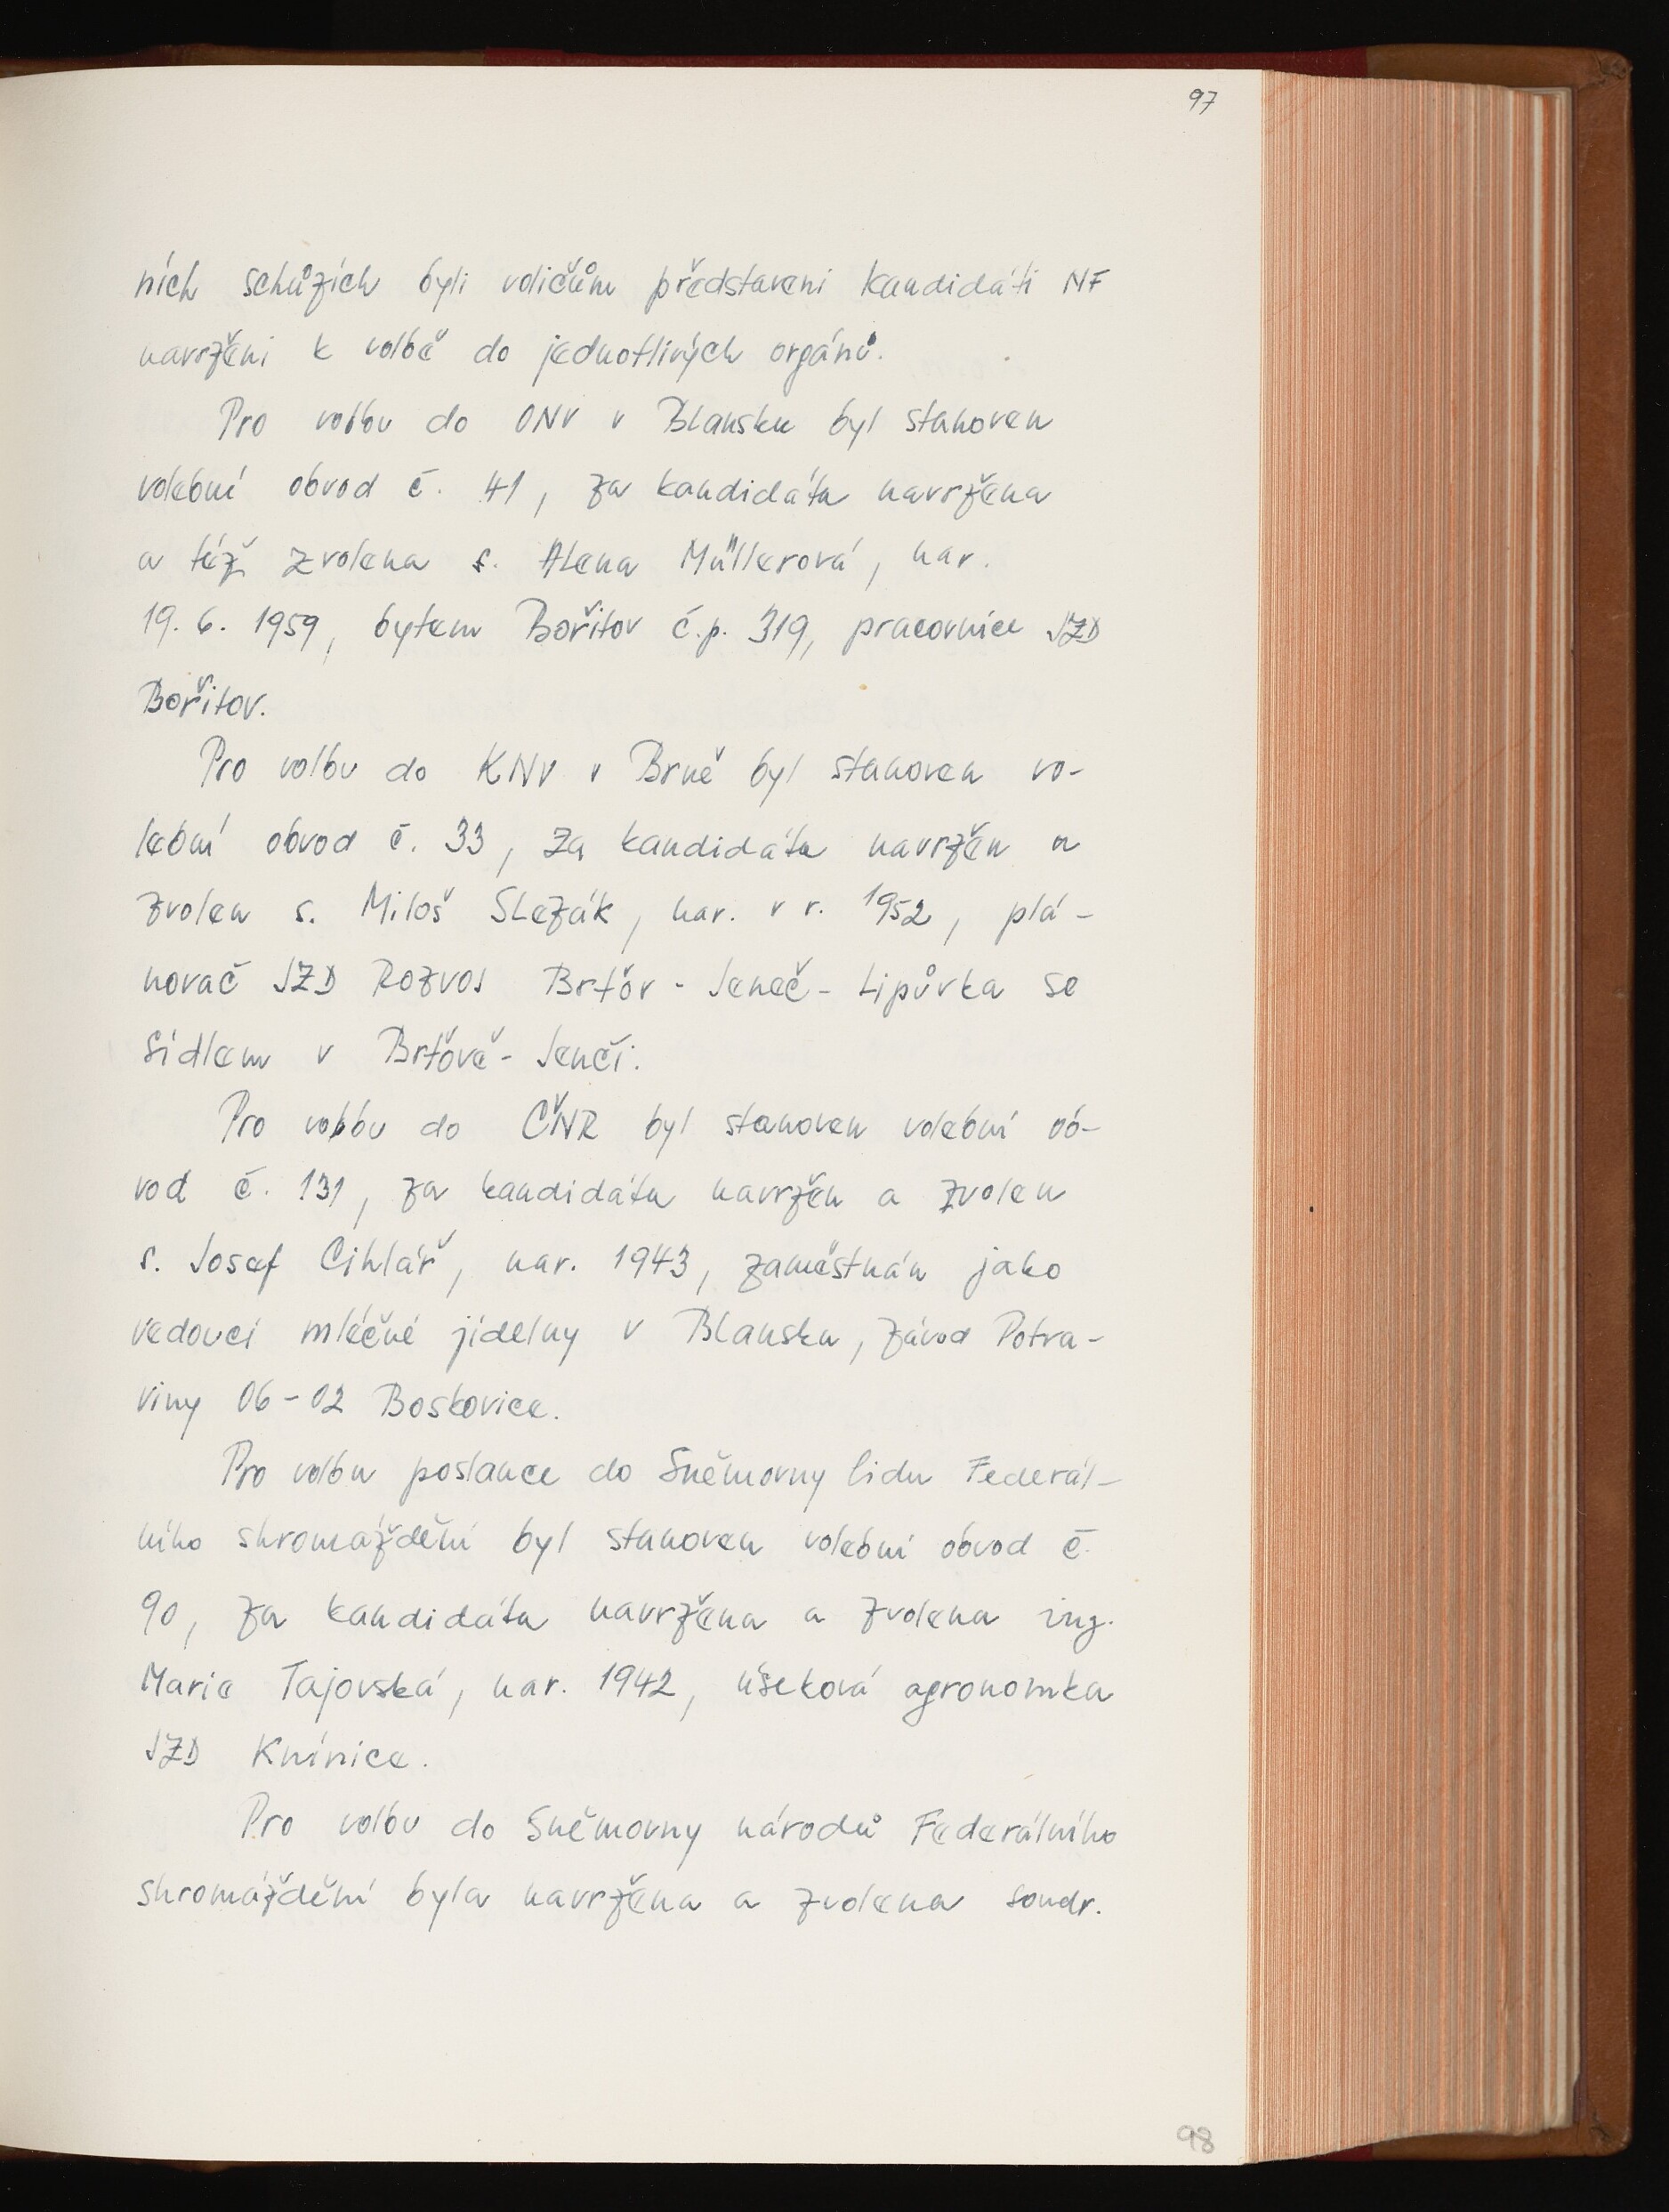 97
ních schůzích byli voličům představeni kandidáti NF
navrženi k volbě do jednotlivých orgánů.
Pro volbu do ONV v Blansku byl stanoven
volební obvod č. 41, za kandidáta navržena
a též zvolena s. Alena Müllerová, nar.
19. 6. 1959, bytem Bořitov č.p. 319, pracovnice JZD
Bořitov.
Pro volbu do KNV v Brně byl stanoven vo-
lební obvod č. 33, za kandidáta navržen a
zvolen s. Miloš Slezák, nar. v r. 1952, plá-
novač JZD Rozvoj Brťov - Jeneč - Lipůvka se
sídlem v Brťově - Jenči.
Pro volbu do ČNR byl stanoven volební ob-
vod č. 131, za kandidáta navržen a zvolen
s. Josef Cihlář, nar. 1943, zaměstnán jako
vedoucí mléčné jídelny v Blansku, závod Potra-
viny 06-02 Boskovice.
Pro volbu poslance do Sněmovny lidu Federál-
ního shromáždění byl stanoven volební obvod č.
90, za kandidáta navržena a zvolena ing.
Marie Tajovská, nar. 1942, úseková agronomka
JZD Knínice.
Pro volbu do Sněmovny národů Federálního
shromáždění byla navržena a zvolena soudr.
98